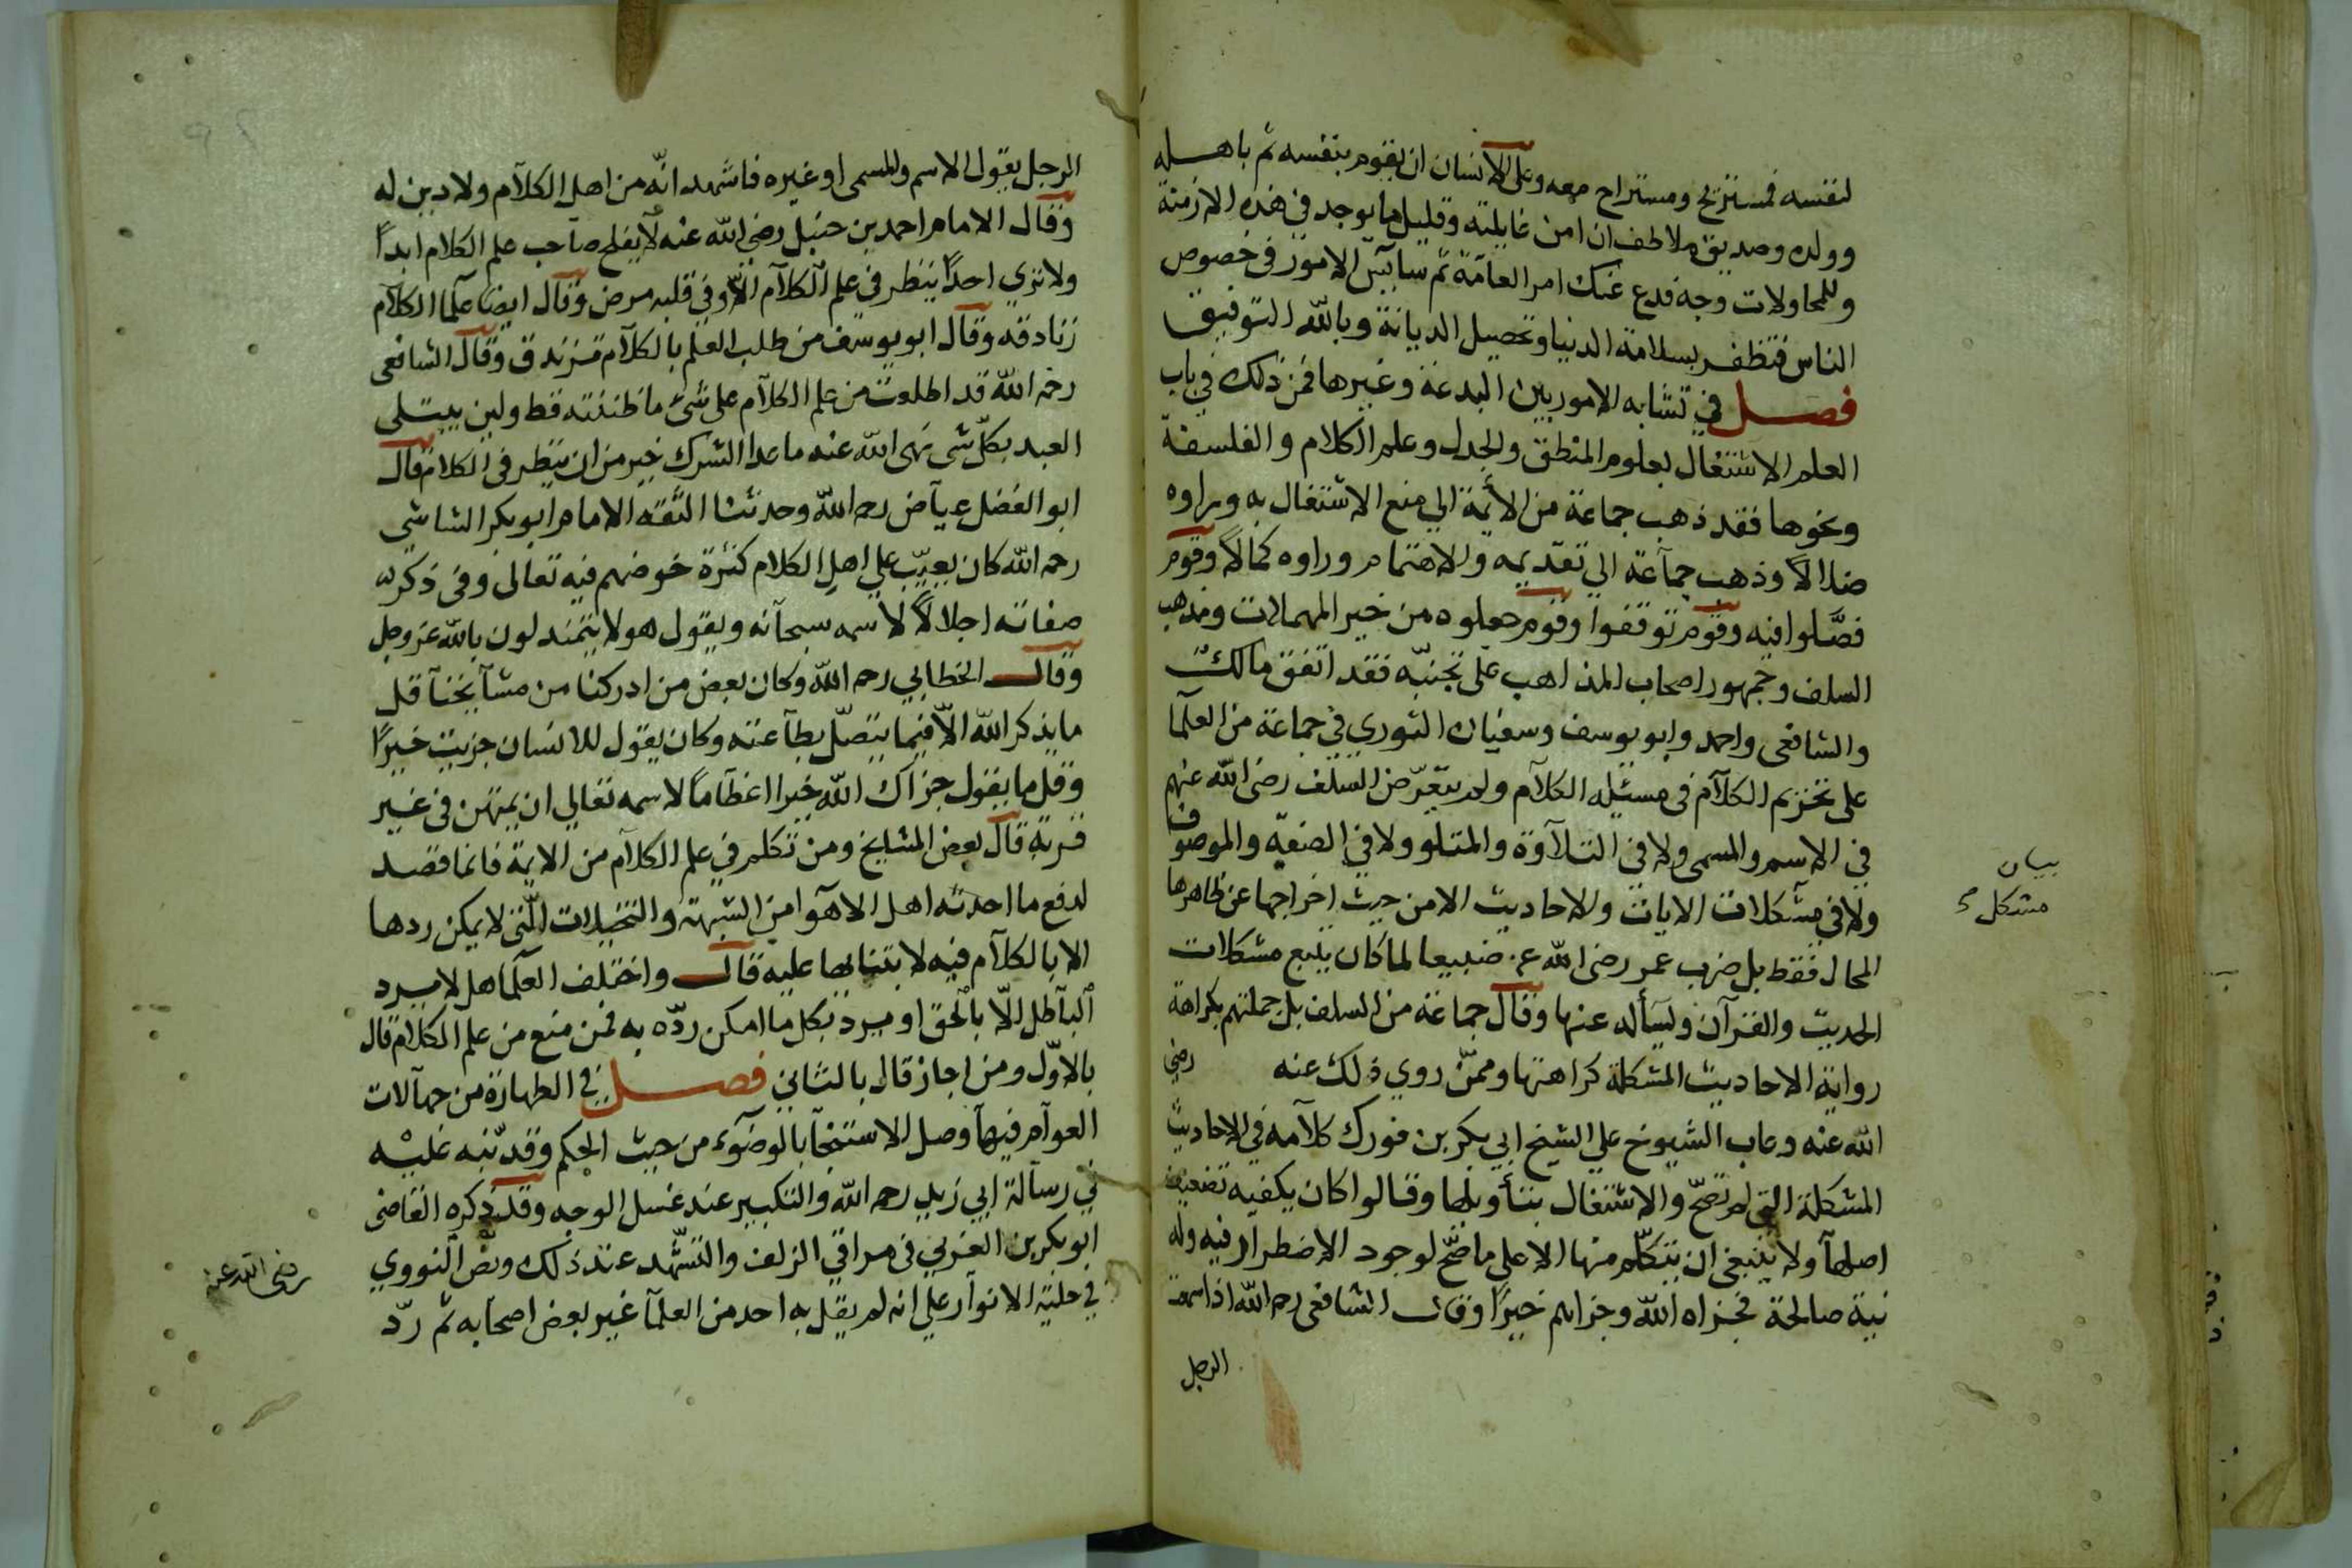 لنفسه فمستريح ومستراح معه وعلى الانسان ان يقوم بنفسه ثم باهله
وولده وصديق ملاطف ان امن غايلته وقليل ما يوجد في هذه الازمنة
وللمحاولات وجه فدع عنك امر العامّة ثم سآيس الامور في خصوص
الناس فتظفر بسلامة الدنيا وتحصيل الديانة وبالله التوفيق
فصل في تشابه الامور بين البدعة وغيرها فمن ذلك في باب
العلم الاشتغال بعلوم المنطق والجدل وعلم الكلام والفلسفة
ونحوها فقد ذهب جماعة من الأيمة الي منع الاشتغال به وراوه
ضلالاً وذهب جمآعة الي تقديمه والاهتمام وراوه كمالاً وقوم
فصّلوا فيه وقوم توقفوا وقوم جعلوه من خير المهمالات ومذهب
السلف وجمهور اصحاب المذاهب على تجنبّه فقد اتفق مالك
والشافعي واحمد وابو يوسف وسفيان الثوري في جماعة من العلمآ
على تحريم الكلآم في مسئله الكلآم ولم يتعرّض السلف رضي الله عنهم
في الاسم والمسمى ولا في التلآوة والمتلو ولا في الصفة والموصوف
ولا في مشكلات الايات والاحاديث الا من حيث اخراجها عن ظاهرها
بيان
مشكل
المحال فقط بل ضرب عمر رضي الله عنه ضبيعا لما كان يتبع مشكلات
الحديث والقرآن ويسأله عنها وقال جماعة من السلف بل جملتهم بكراهة
رواية الاحاديث المشكلة كراهتها وممّن روي ذلك عنه رضي
الله عنه وعاب الشيوخ علي الشيخ ابي بكر بن فورك كلآمه في الاحاديث
المشكلة التي لم تصحّ والاشتغال بتأويلها وقالوا كان يكفيه تضعيف
اصلهآ ولا ينبغي ان يتكلّم منها الا على ما صّح لوجود الاضطرار فيه وله
نية صالحة فجزاه الله وجزاهم خيرًا وقال الشافعي رحمه الله اذا سمعت
الرجل
الرجل يقول الاسم والمسمى او غيره فاشهد انّه من اهل الكلآم ولا دين له
وقال الامام احمد بن حنبل رضي الله عنه لا يفلح صاحب علم الكلام ابدًا
ولا تري احدًا ينظر في علم الكلآم الّا وفي قلبه مرض وقال ايضا علمآ الكلآم
زنادقه وقال ابو يوسف من طلب العلم بالكلآم تزندق وقال الشافعي
رحمه الله قد اطلعت من علم الكلآم على شئ ما ظننته قط ولين يبتلى
العبد بكلّ شي نهى الله عنه ما عدا الشرك خير من ان ينظر في الكلام قال
ابو الفضل عيآض رحمه الله وحدثنا الثقه الامام ابو بكر الشاشي
رحمه الله كان يعيّب علي اهل الكلام كثرة خوضهم فيه تعالى وفي ذكر
صفاته اجلالاً لاسمه سبحآنه ويقول هولا يتمندلون بالله عز وجل
وقال الخطابي رحمه الله وكان بعض من ادركنا من مشآيخنآ قل
ما يذكر الله الّا فيما يتصّل بطآعته وكان يقول للانسان جزيت خيرًا
وقل ما يقول جزاك الله خيرا اعظآمًا لاسمه تعالي ان يمتهن في غير
قربة قال بعض المشايخ ومن تكلم في علم الكلآم من الايمة فانما قصد
لدفع ما احدثه اهل الاهوا من الشبهة والتخيلات الّتي لا يمكن ردها
الا بالكلآم فيه لا بتنابها عليه قال واختلف العلمآ هل لا يرد
البآطل الّا بالحق او يرد بكل ما امكن ردّه به فمن منع من علم الكلام قال
بالاوّل ومن اجاز قال بالثاني فصل في الطهارة من جهآلات
العوآم فيهآ وصل الاستنجآ بالوضوء من حيث الحكم وقد نبّه عليه
في رسآلة ابي زيد رحمه الله والتكبير عند غسل الوجه وقد ذكره القاضي
ابو بكر بن العربي في مراقي الزلف والتشهّد عند ذلك ونصّ النووي
رضي الله عنه
في حلية الانوآر علي انه لم يقل به احد من العلمآ غير بعض اصحآبه ثم ردّ